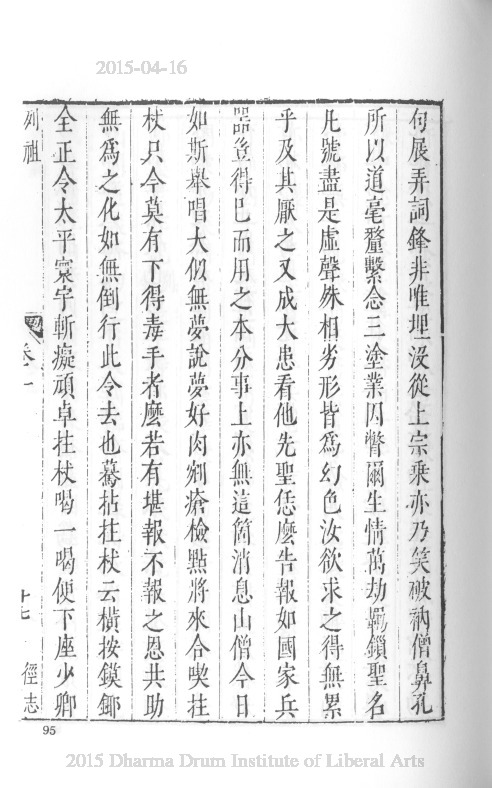 2015-04-16
句展弄詞鋒非唯埋沒從上宗乘亦乃笑破衲僧鼻孔
所以道毫釐繫念三塗業因瞥爾生情萬劫羈鎖聖名
凡號盡是虛聲殊相劣形皆為幻色汝欲求之得無累
乎及其厭之又成大患看他先聖恁麼告報如國家兵
器豈得已而用之本分事上亦無這箇消息山僧今日
如斯舉唱大似無夢說夢好肉剜瘡檢點將來合喫拄
杖只今莫有下得毒手者麼若有堪報不報之恩共助
無為之化如無倒行此令去也驀拈拄杖云橫按鏌鋣
全正令太平寰宇斬癡頑卓拄杖喝一喝便下座少卿
列祖 卷一 十七 徑志
95
2015 Dharma Drum Institute of Liberal Arts